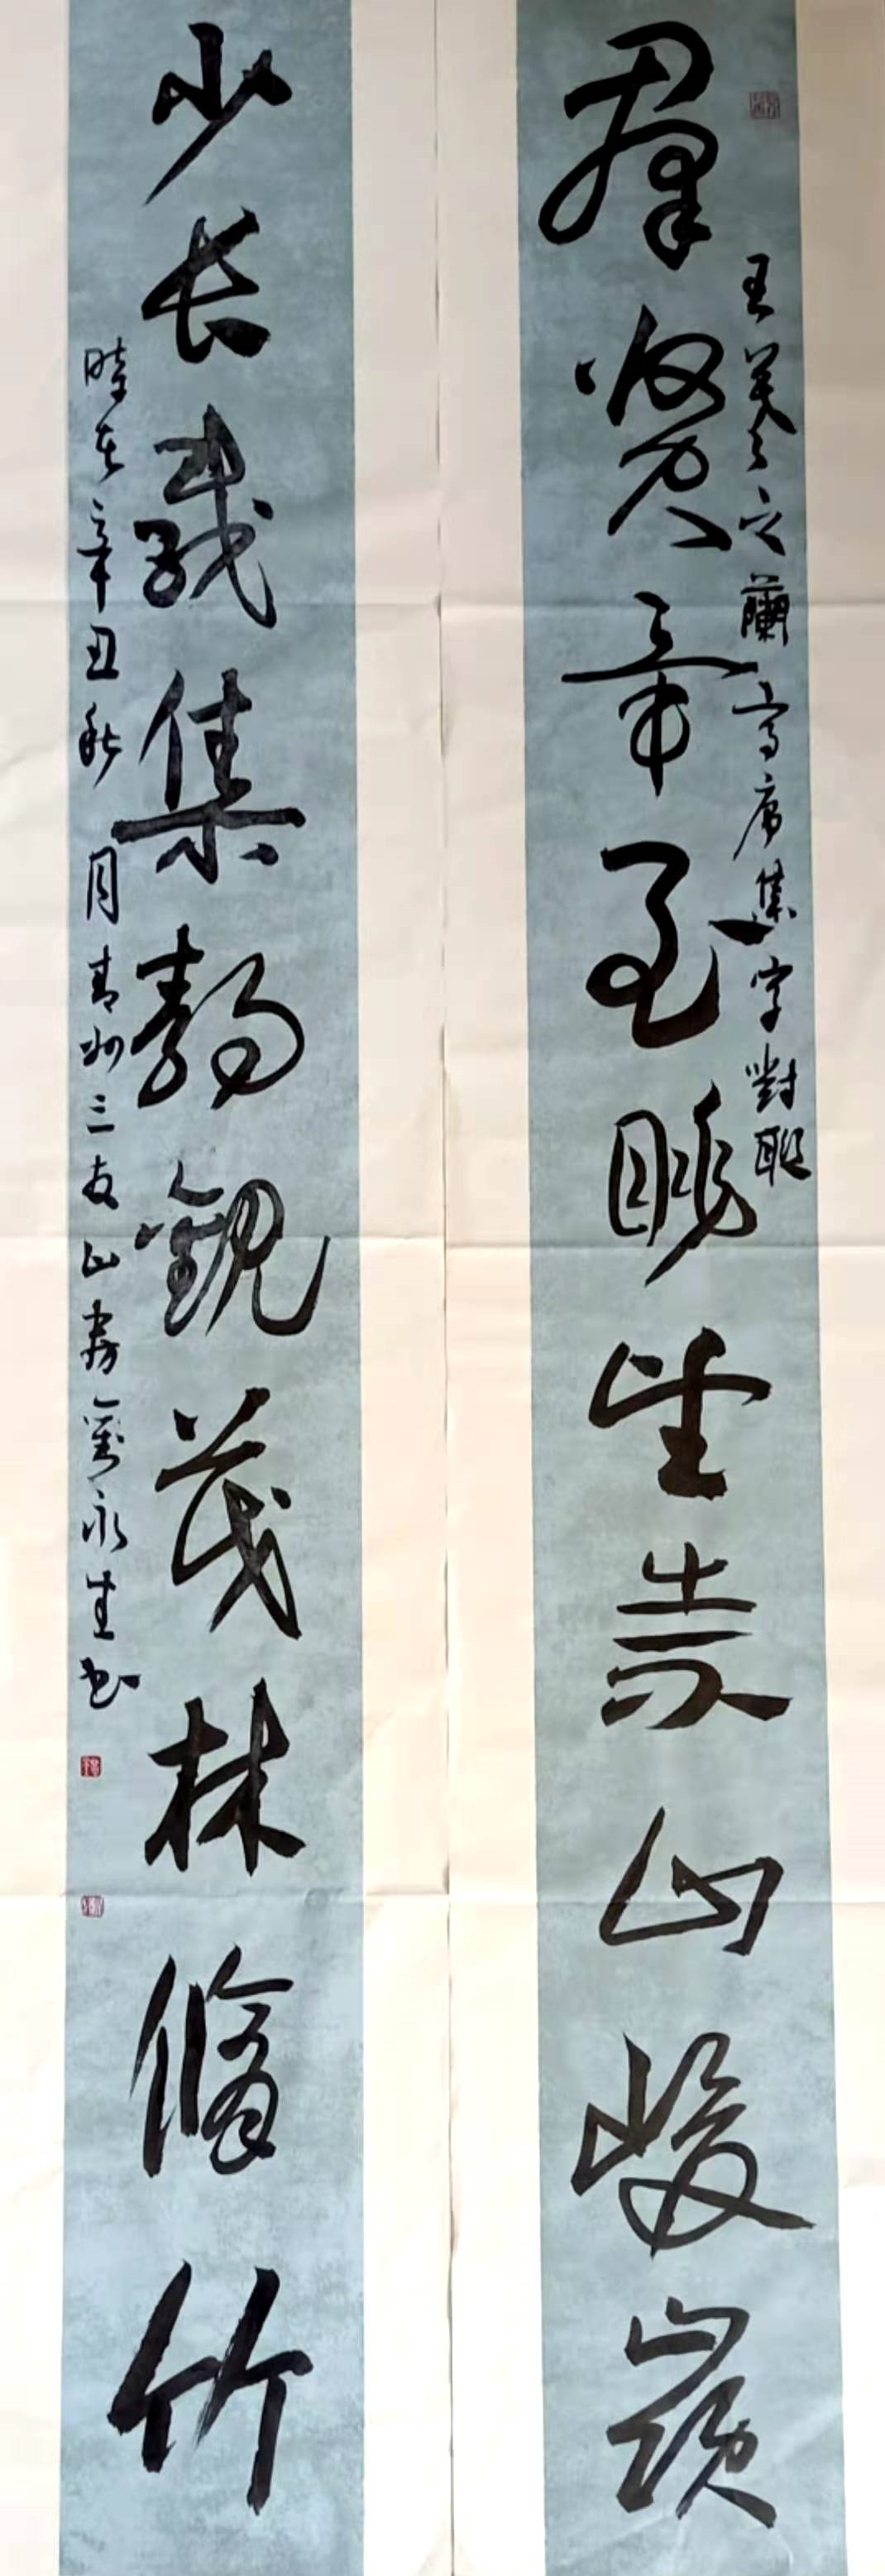 王羲之蘭亭序集字對聯
群賢畢至眺望崇山峻嶺
少長咸集静觀茂林脩竹
時在辛丑秋月青州三友山房劉永生書